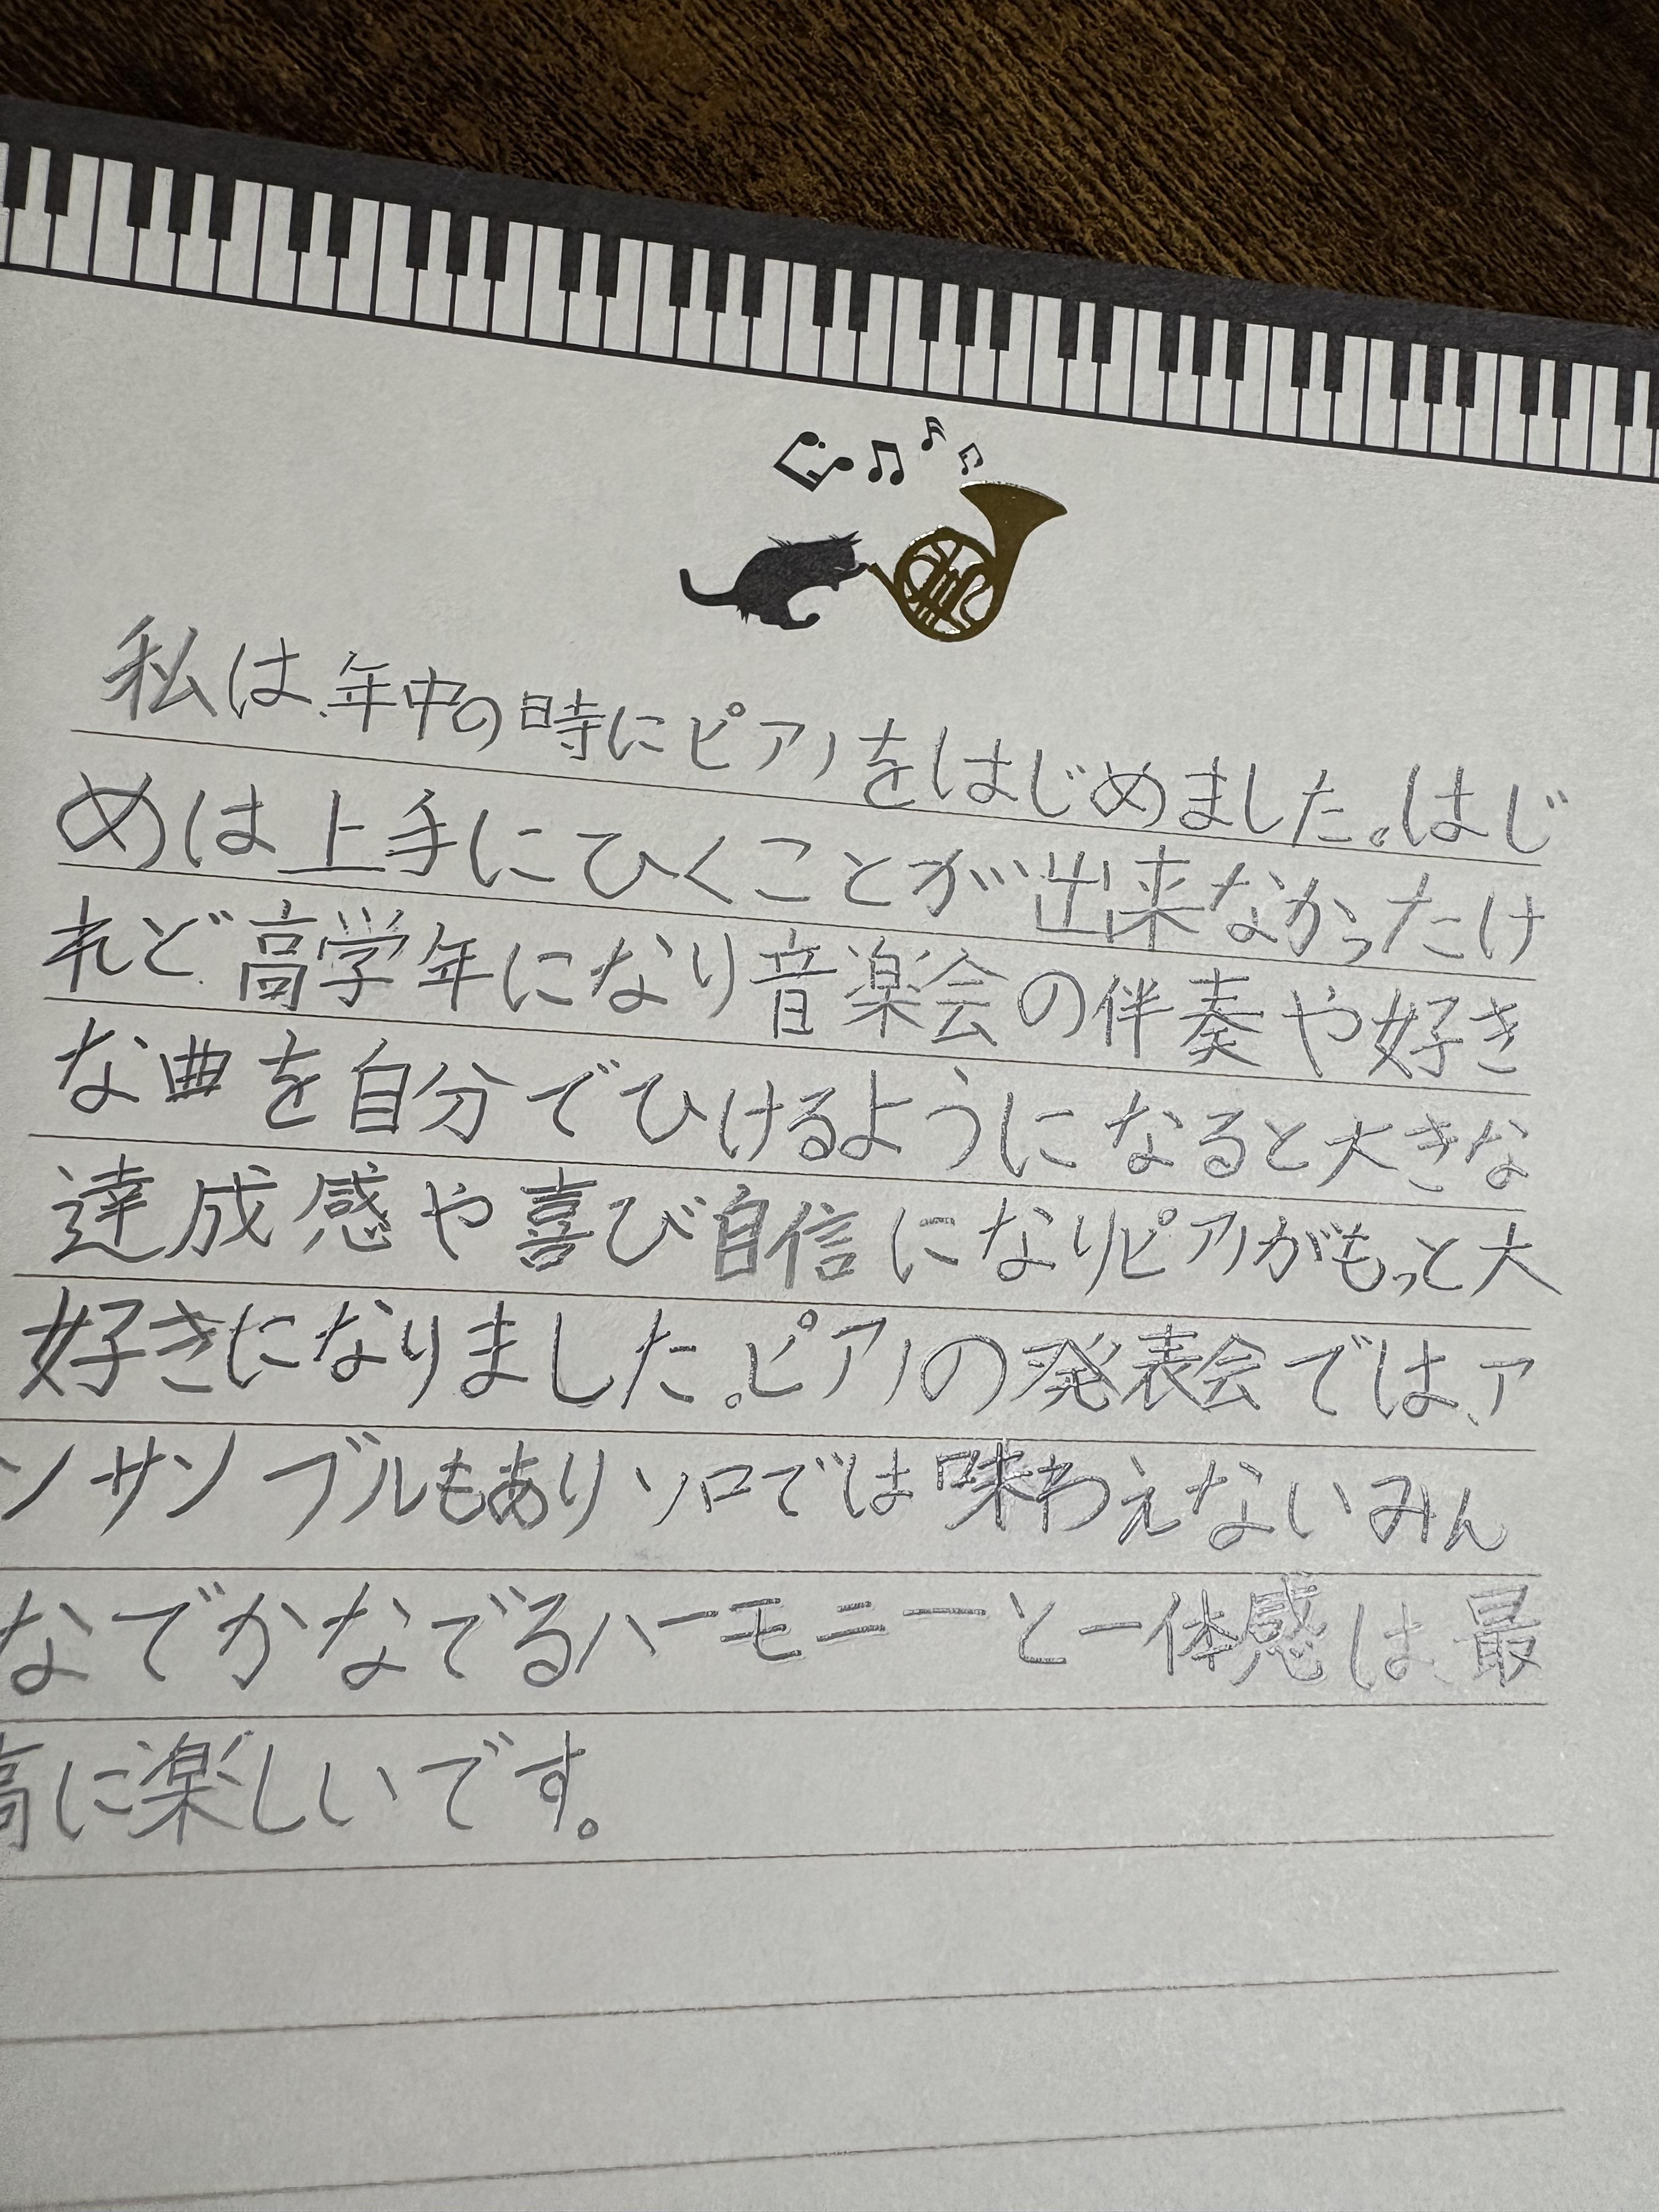 私は、年中の時にピアノをはじめました。はじ
めは上手にひくことが出来なかったけ
れど、高学年になり音楽会の伴奏や好き
な曲を自分でひけるようになると大きな
達成感や喜び自信になりピアノがもっと大
好きになりました。ピアノの発表会では、ア
ンサンブルもありソロでは味わえないみん
なでかなでるハーモニーと一体感は、最
高に楽しいです。